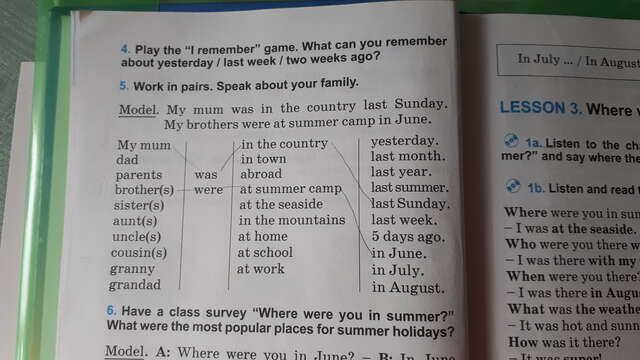 4. Play the “I remember” game. What can you remember
about yesterday / last week / two weeks ago?
5. Work in pairs. Speak about your family.
Model. My mum was in the country last Sunday.
My brothers were at summer camp in June.
My mum in the country yesterday.
dad in town last month.
parents was abroad last year.
brother(s) were at summer camp last summer.
sister(s) at the seaside last Sunday.
aunt(s) in the mountains last week.
uncle(s) at home 5 days ago.
cousin(s) at school in June.
granny at work in July.
grandad in August.
6. Have a class survey “Where were you in summer?”
What were the most popular places for summer holidays?
Model. A: Where were you in June? – B: In June
In July ... / In August
LESSON 3. Where
1a. Listen to the
mer?” and say where the
1b. Listen and read
Where were you in
– I was at the seaside.
Who were you there
– I was there with my
When were you there?
– I was there in
What was the
– It was hot and
How was it there?
– It was